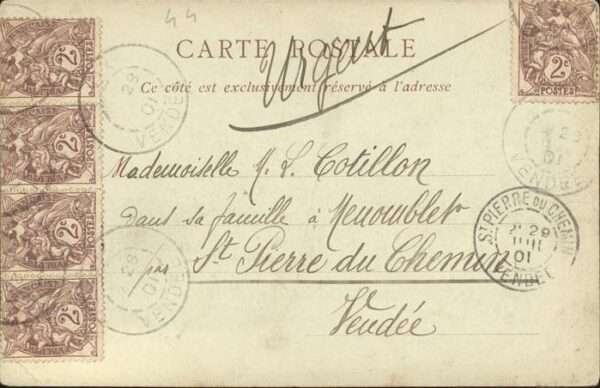 44
CARTE POSTALE
Urgent
Ce côté est exclusivement réservé à l'adresse
Mademoiselle M. L. Cotillon
dans sa famille à Menomblet
par St Pierre du Chemin
Vendée
2c
POSTES
2c
POSTES
2c
POSTES
2c
POSTES
2c
POSTES
29
01
VENDÉE
29
01
VENDÉE
29
01
VENDÉE
ST PIERRE DU CHEMIN
29
JUIL
01
VENDÉE